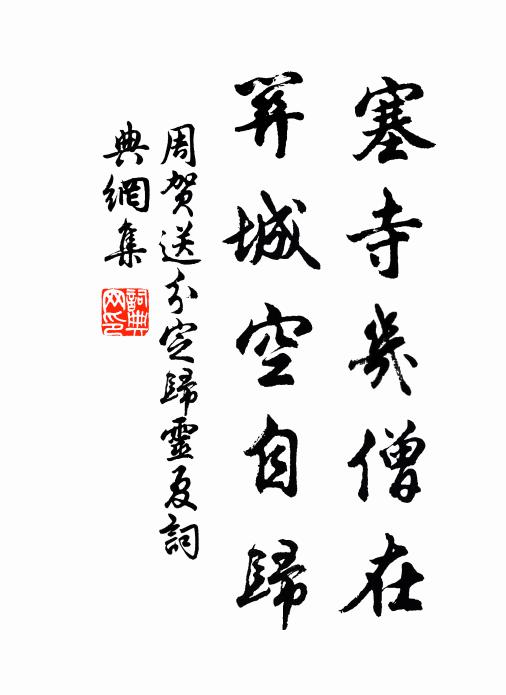 塞寺幾僧在
關城空自歸
周賀送分定歸靈夏詞
典網集
詞典網印